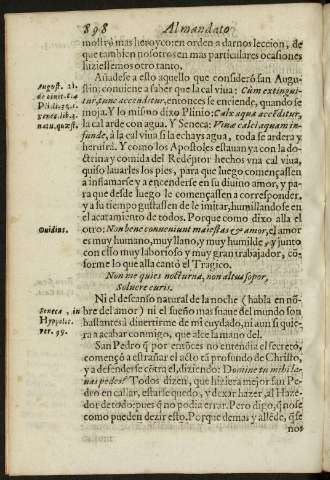 898 Al mandato
mostrò mas heroyco: en orden a darnos leccion, de
que tambien nosotros en mas particulares ocasiones
hiziessemos otro tanto.
Añadese a esto aquello que consideró san Augu-
August. 21.
stin: conviene a saber que la cal viua: Cùm extingui-
de ciuit. c. 4
tur, tunc accenditur, entonces se enciende, quando se
Plin. li.
moja. Y lo mismo dixo Plinio: Calx aqua accẽditur,
Senec. lib. 3.
la cal arde con agua. Y Seneca: Viuæ calci aquam in-
natu. quæst.
funde, à la cal viua si la echays agua, toda se ardera y
heruirà. Y como los Apostoles estauan ya con la do-
ctrina y comida del Redẽptor hechos vna cal viua,
quiso lauarles los pies, para que luego començassen
a inflamarse y a encenderse en su diuino amor, y pa-
ra que desde luego le començassen a corresponder,
y a su tiempo gustassen de le imitar, humillandose en
el acatamiento de todos. Porque como dixo alla el
Ouidius.
otro: Non bene conueniunt maiestas & amor, el amor
es muy humano, muy llano, y muy humilde, y junto
con esso muy laborioso y gran trabajador, cõ-
forme lo que alla cantò el Tragico.
Non me quies nocturna, non altus sopor,
Soluere curis.
Ni el descanso natural de la noche (habla en nõ-
Seneca, in
bre del amor) ni el sueño mas suaue del mundo son
Hyppolit.
bastantes à diuertirme de mi cuydado, ni aun si quie-
ver. 99.
ra a acabar conmigo, que alce la mano del.
San Pedro q̃ por entonces no entendia el secreto,
començò a estrañar el acto tã profundo de Christo,
y a defenderse cõtra el, diziendo: Domine tu mihi la-
uas pedes? Todos dizen, que hiziera mejor san Pe-
dro en callar, estarse quedo, y dexar hazer, al Haze-
dor de todo: pues q̃ no podia errar. Pero digo, q̃ no se
como pueden dezir esto. Porque demas y allẽde, q̃ se
nos